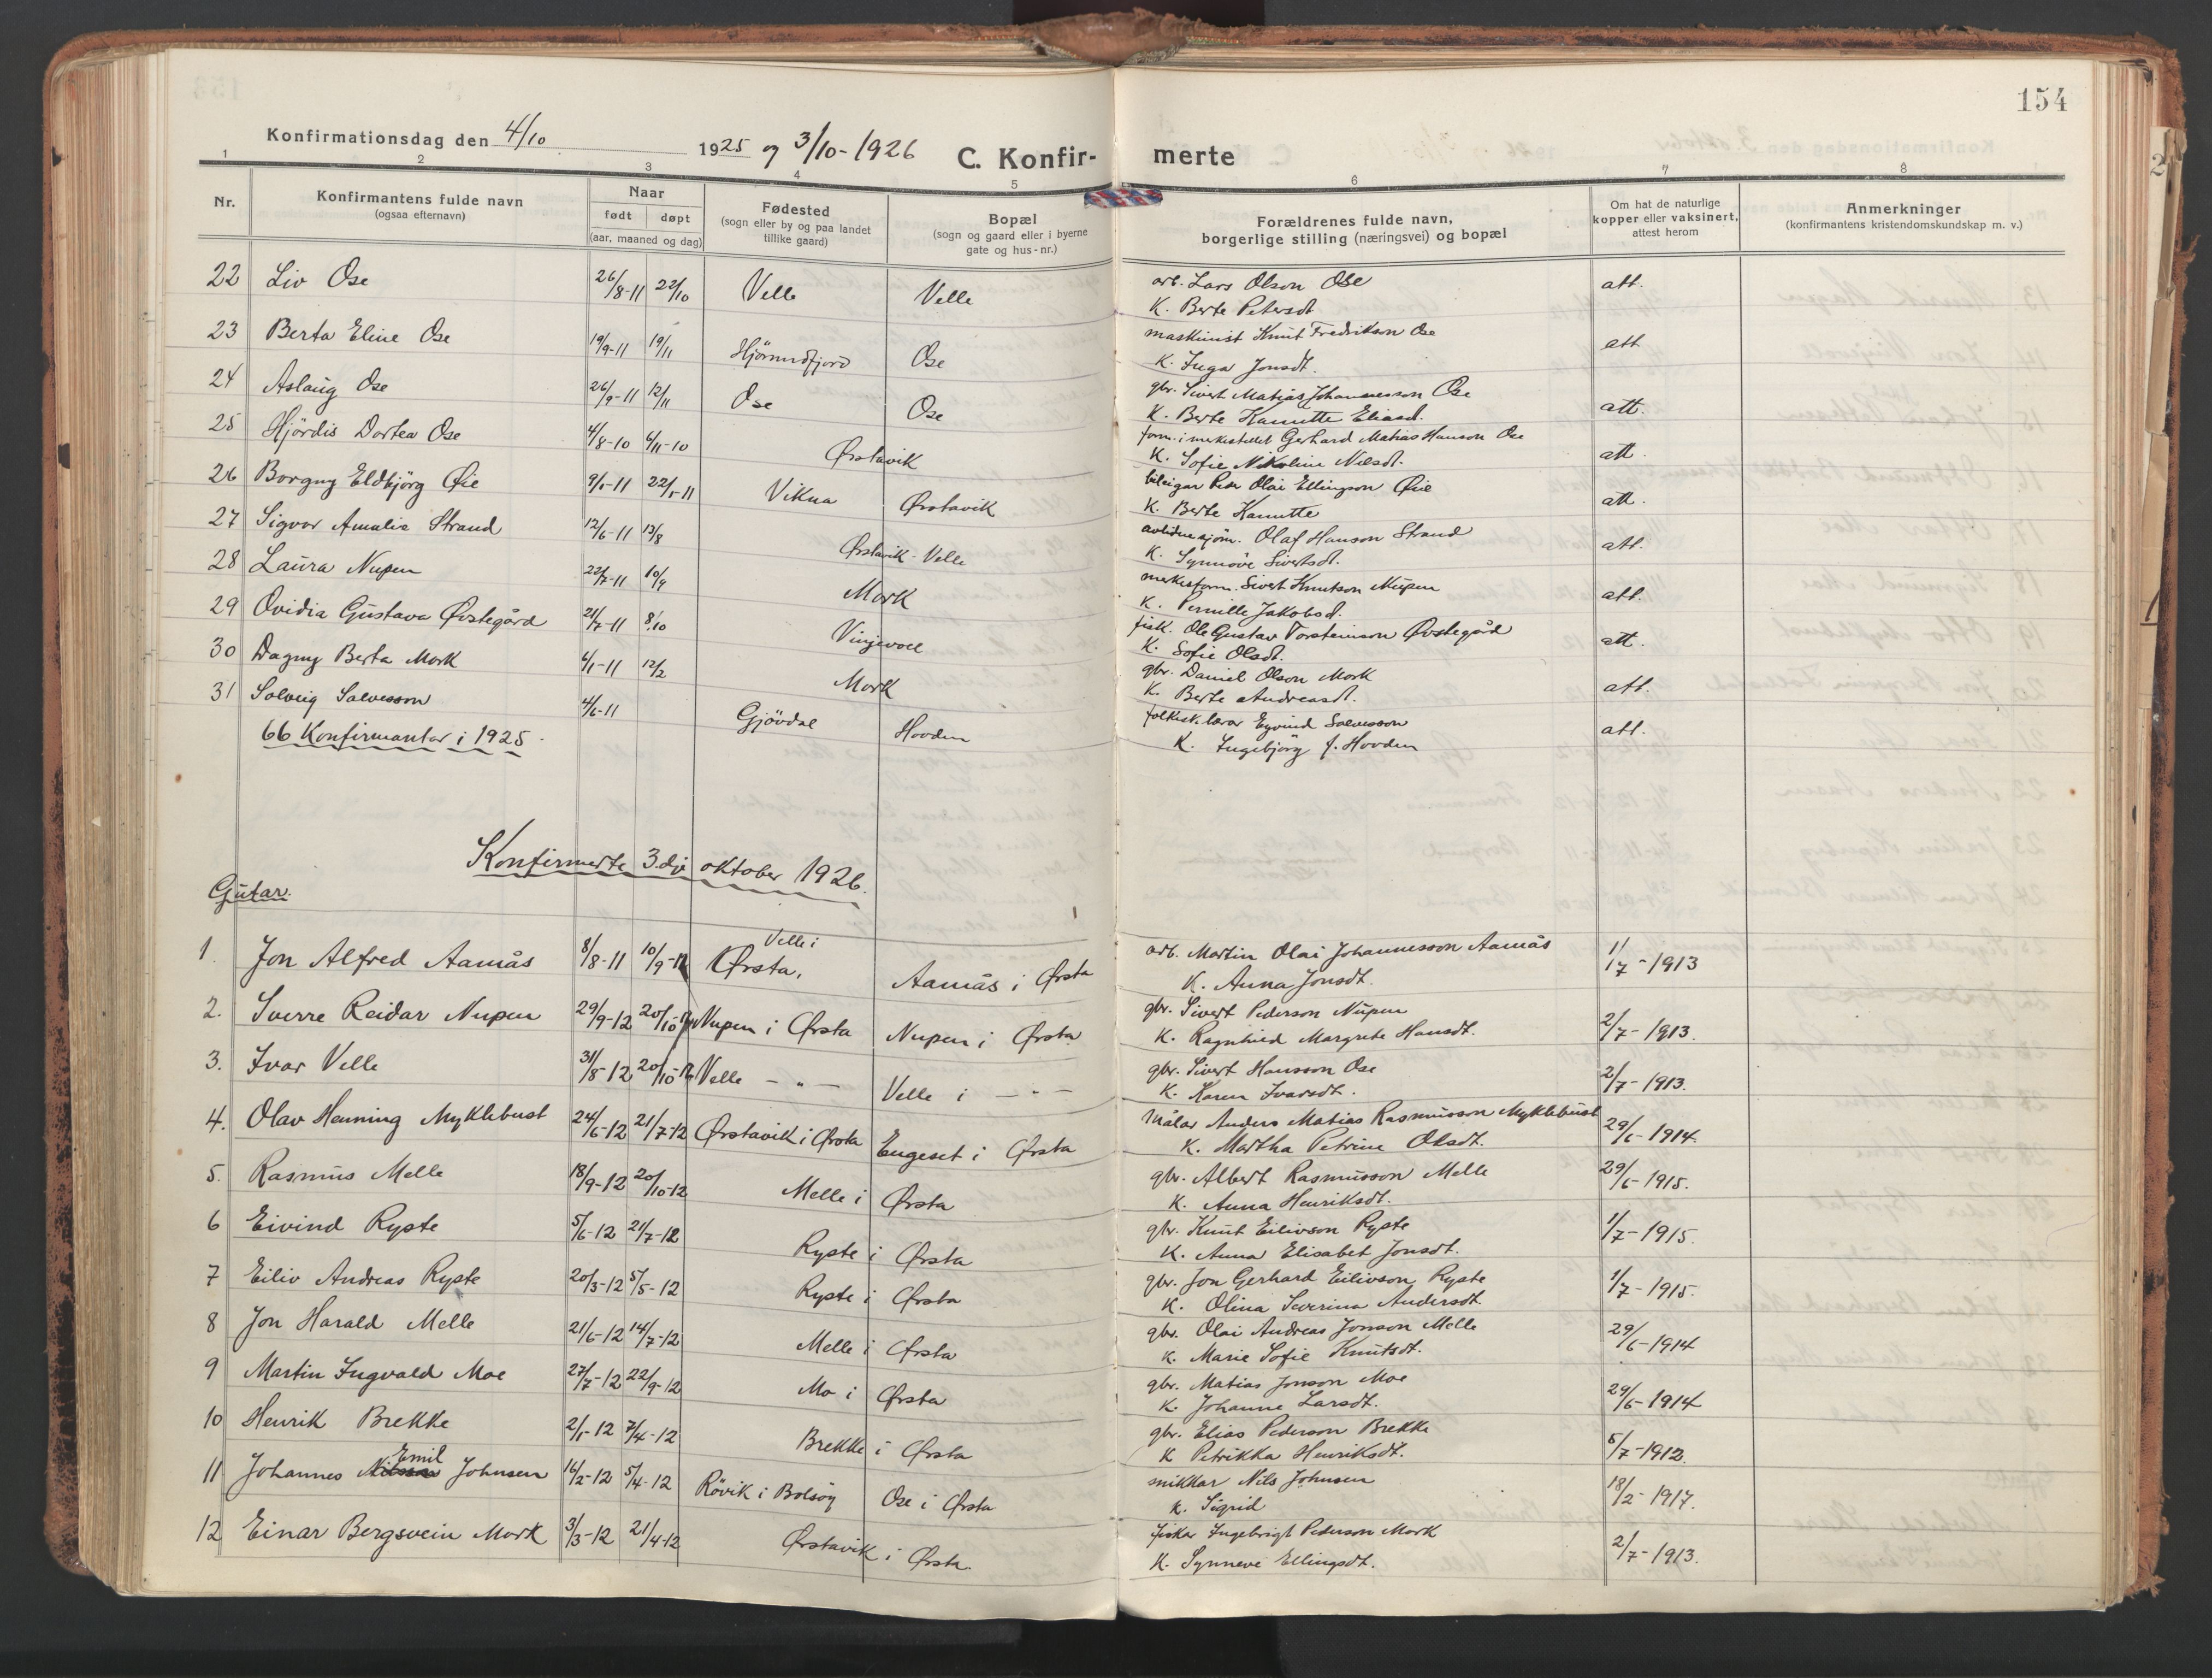 154
Konfirmationsdag den 4/10 1925 og 3/10-1926 C. Konfir- merte
1 2 3 4 5 6 7 8
Nr. Konfirmantens fulde navn (ogsaa efternavn) Naar født døpt (aar, maaned og dag) Fødested (sogn eller by og paa landet tillike gaard) Bopæl (sogn og gaard eller i byerne gate og hus-nr.) Forældrenes fulde navn, borgerlige stilling (næringsvei) og bopæl Om hat de naturlige kopper eller vaksinert, attest herom Anmerkninger (konfirmantens kristendomskundskap m. v.)
22 Liv Ose 26/8-11 22/10 Velle Velle arb. Lars Olson Ose att.
K. Berte Petersdt
23 Berta Eline Ose 19/9-11 19/11 Hjörundfjord Ose maskinist Knut Fredrikson Ose att
K. Inga Jonsdt.
24 Aslaug Ose 26/9-11 12/11 Ose Ose gbr. Sivert Matias Johannesson Ose att.
K. Berte Hanutte Eliasd.
25 Hjördis Dortea Ose 4/8-10 6/11-10 Ørstavik form. i merkestellet Gerhard Matias Hanson Ose att.
K. Sofie Nikoline Nilsdt.
26 Borgny Eldbjörg Øie 9/1-11 22/1-11 Vikna Ørstavik bileigar Peter Olai Ellingson Øie att.
K. Berte Hanutte
27 Sigvor Amalie Strand 12/6-11 13/8 Ørstavik-Velle avlidne sjöm. Olaf Hanson Strand att.
K. Synnöve Sivertsdt.
28 Laura Nupen 22/7-11 10/9 Mork merkesform. Sivert Knutson Nupen att.
K. Pernille Jakobsd.
29 Ovidia Gustava Øvstegård 21/7-11 8/10 Vinjevoll fisk. Ole Gustav Torsteinson Øvstegård att.
K. Sofie Olsdt.
30 Dagny Berta Mork 4/1-11 12/2 Mork gbr. Daniel Olson Mork att.
K. Berte Andreasdt.
31 Solveig Salvesson 4/6-11 Gjövdal Hovden folkesk.lærar Eyvind Salvesson att.
K. Ingebjörg f. Hovden
66 Konfirmantar i 1925.
Konfirmerte 3.dje oktober 1926.
Gutar.
1. Jon Alfred Aamås 8/8-11 10/9-11 Velle i Ørsta, Aamås i Ørsta arb. Martin Olai Johannesson Aamås 1/7-1913
K. Anna Jonsdt.
2. Sverre Reidar Nupen 29/9-12 20/10-12 Nupen i Ørsta Nupen i Ørsta gbr. Sivert Pederson Nupen 2/7-1913.
K. Ragnhild Margrete Hansdt.
3. Ivar Velle 31/8-12 20/10-12 Velle - " - Velle i - " - gbr. Sivert Hansson Ose 2/7-1913.
K. Karen Ivarsdt.
4. Olav Henning Myklebust 24/6-12 21/7-12 Ørstavik i Ørsta Engeset i Ørsta Målar Anders Matias Rasmusson Myklebust 29/6-1914.
K. Martha Petrine Olsdt.
5. Rasmus Melle 18/9-12 20/10-12 Melle i Ørsta gbr. Albert Rasmusson Melle 29/6-1915.
K. Anna Henriksdt.
6 Eivind Ryste 5/6-12 21/7-12 Ryste i Ørsta gbr. Knut Eilivson Ryste 1/7-1915.
K. Anna Elisabet Jonsdt.
7 Eiliv Andreas Ryste 20/3-12 5/5-12 Ryste i Ørsta gbr. Jon Gerhard Eilivson Ryste 1/7-1915.
K. Olina Severina Andersdt.
8 Jon Harald Melle 21/6-12 14/7-12 Melle i Ørsta gbr. Olai Andreas Jonson Melle 29/6-1914
K. Marie Sofie Knutsdt.
9 Martin Ingvald Moe 27/7-12 22/9-12 Mo i Ørsta gbr. Matias Jonson Moe 29/6-1914
K. Johanne Larsdt.
10 Henrik Brekke 2/1-12 7/4-12 Brekke i Ørsta gbr. Elias Pederson Brekke 5/7-1912.
K Petrikka Henriksdt.
11 Johannes Emil Johnsen 16/2-12 5/4-12 Rövik i Bolsöy Ose i Ørsta snikkar Nils Johnsen 18/2-1917.
K. Sigrid
12 Einar Bergsvein Mork 3/3-12 21/4-12 Ørstavik i Ørsta fiskar Ingebrigt Pederson Mork 2/7-1913.
K. Synneve Ellingsdt.